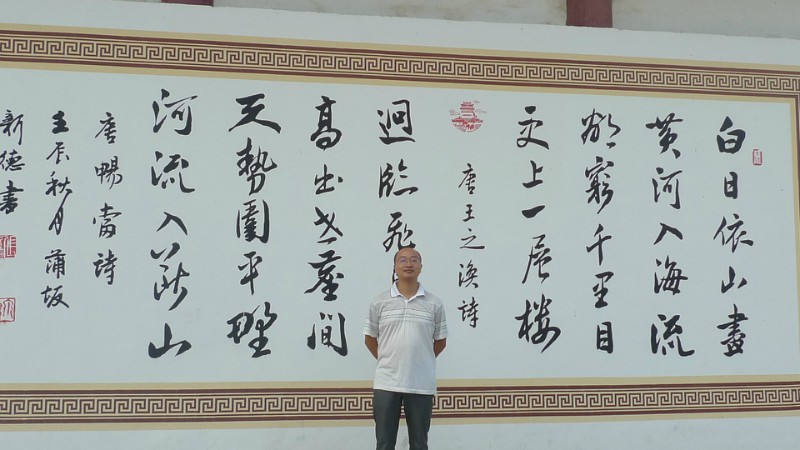 白日依山盡
黄河入海流
欲窮千里目
更上一层楼
唐王之渙诗
迥临飛
高出世塵间
天勢圍平野
河流入斷山
唐暢當诗
壬辰秋月蒲坂
新德書